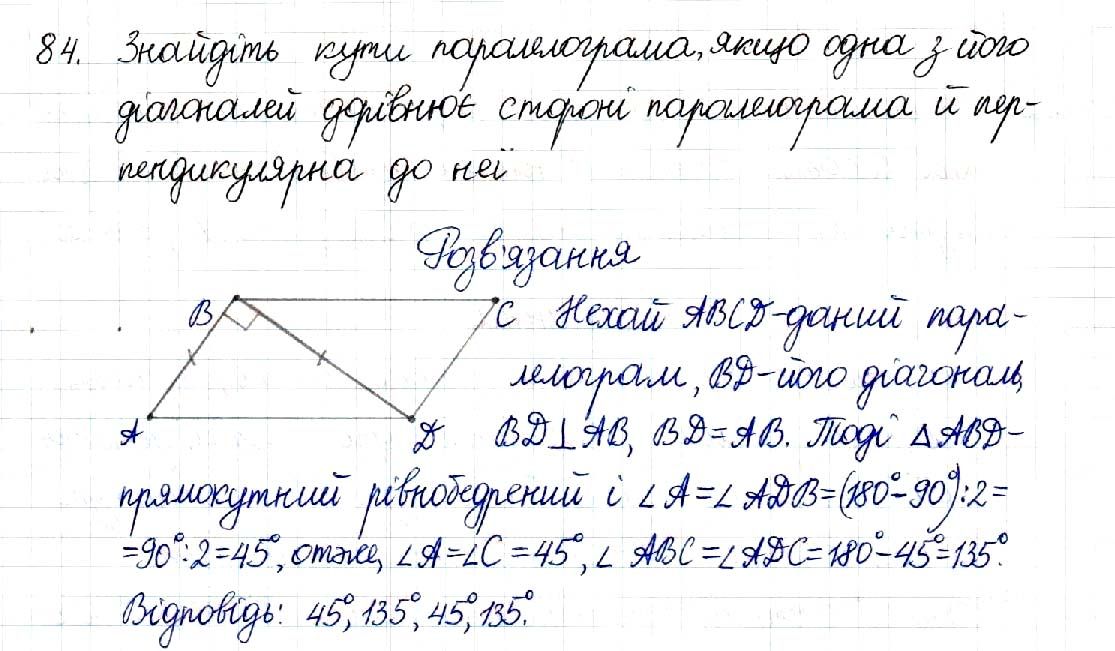 84. Знайдіть кути паралелограма, якщо одна з його
діагоналей дорівнює стороні паралелограма й пер-
пендикулярна до неї
Розв'язання
B
C
A
D
Нехай ABCD-даний пара-
лелограм, BD-його діагональ,
BD⊥AB, BD=AB. Тоді △ABD-
прямокутний рівнобедрений і ∠A=∠ADB=(180°-90°):2=
=90°:2=45°, отже, ∠A=∠C=45°, ∠ABC=∠ADC=180°-45°=135°.
Відповідь: 45°, 135°, 45°, 135°.